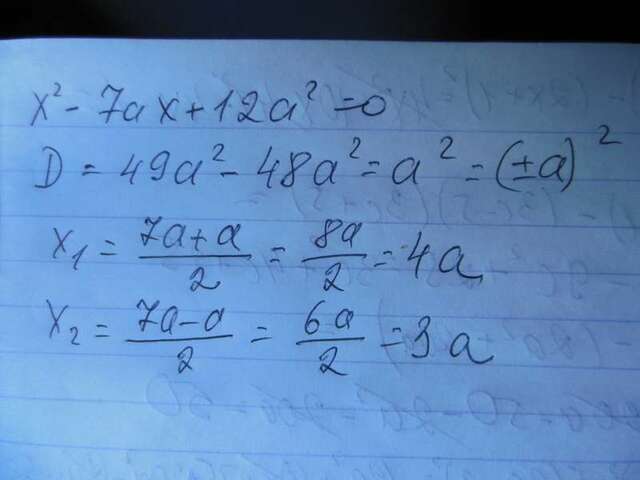 x² - 7ax + 12a² = 0
D = 49a² - 48a² = a² = (±a)²
x₁ = (7a+a)/2 = 8a/2 = 4a
x₂ = (7a-a)/2 = 6a/2 = 3a